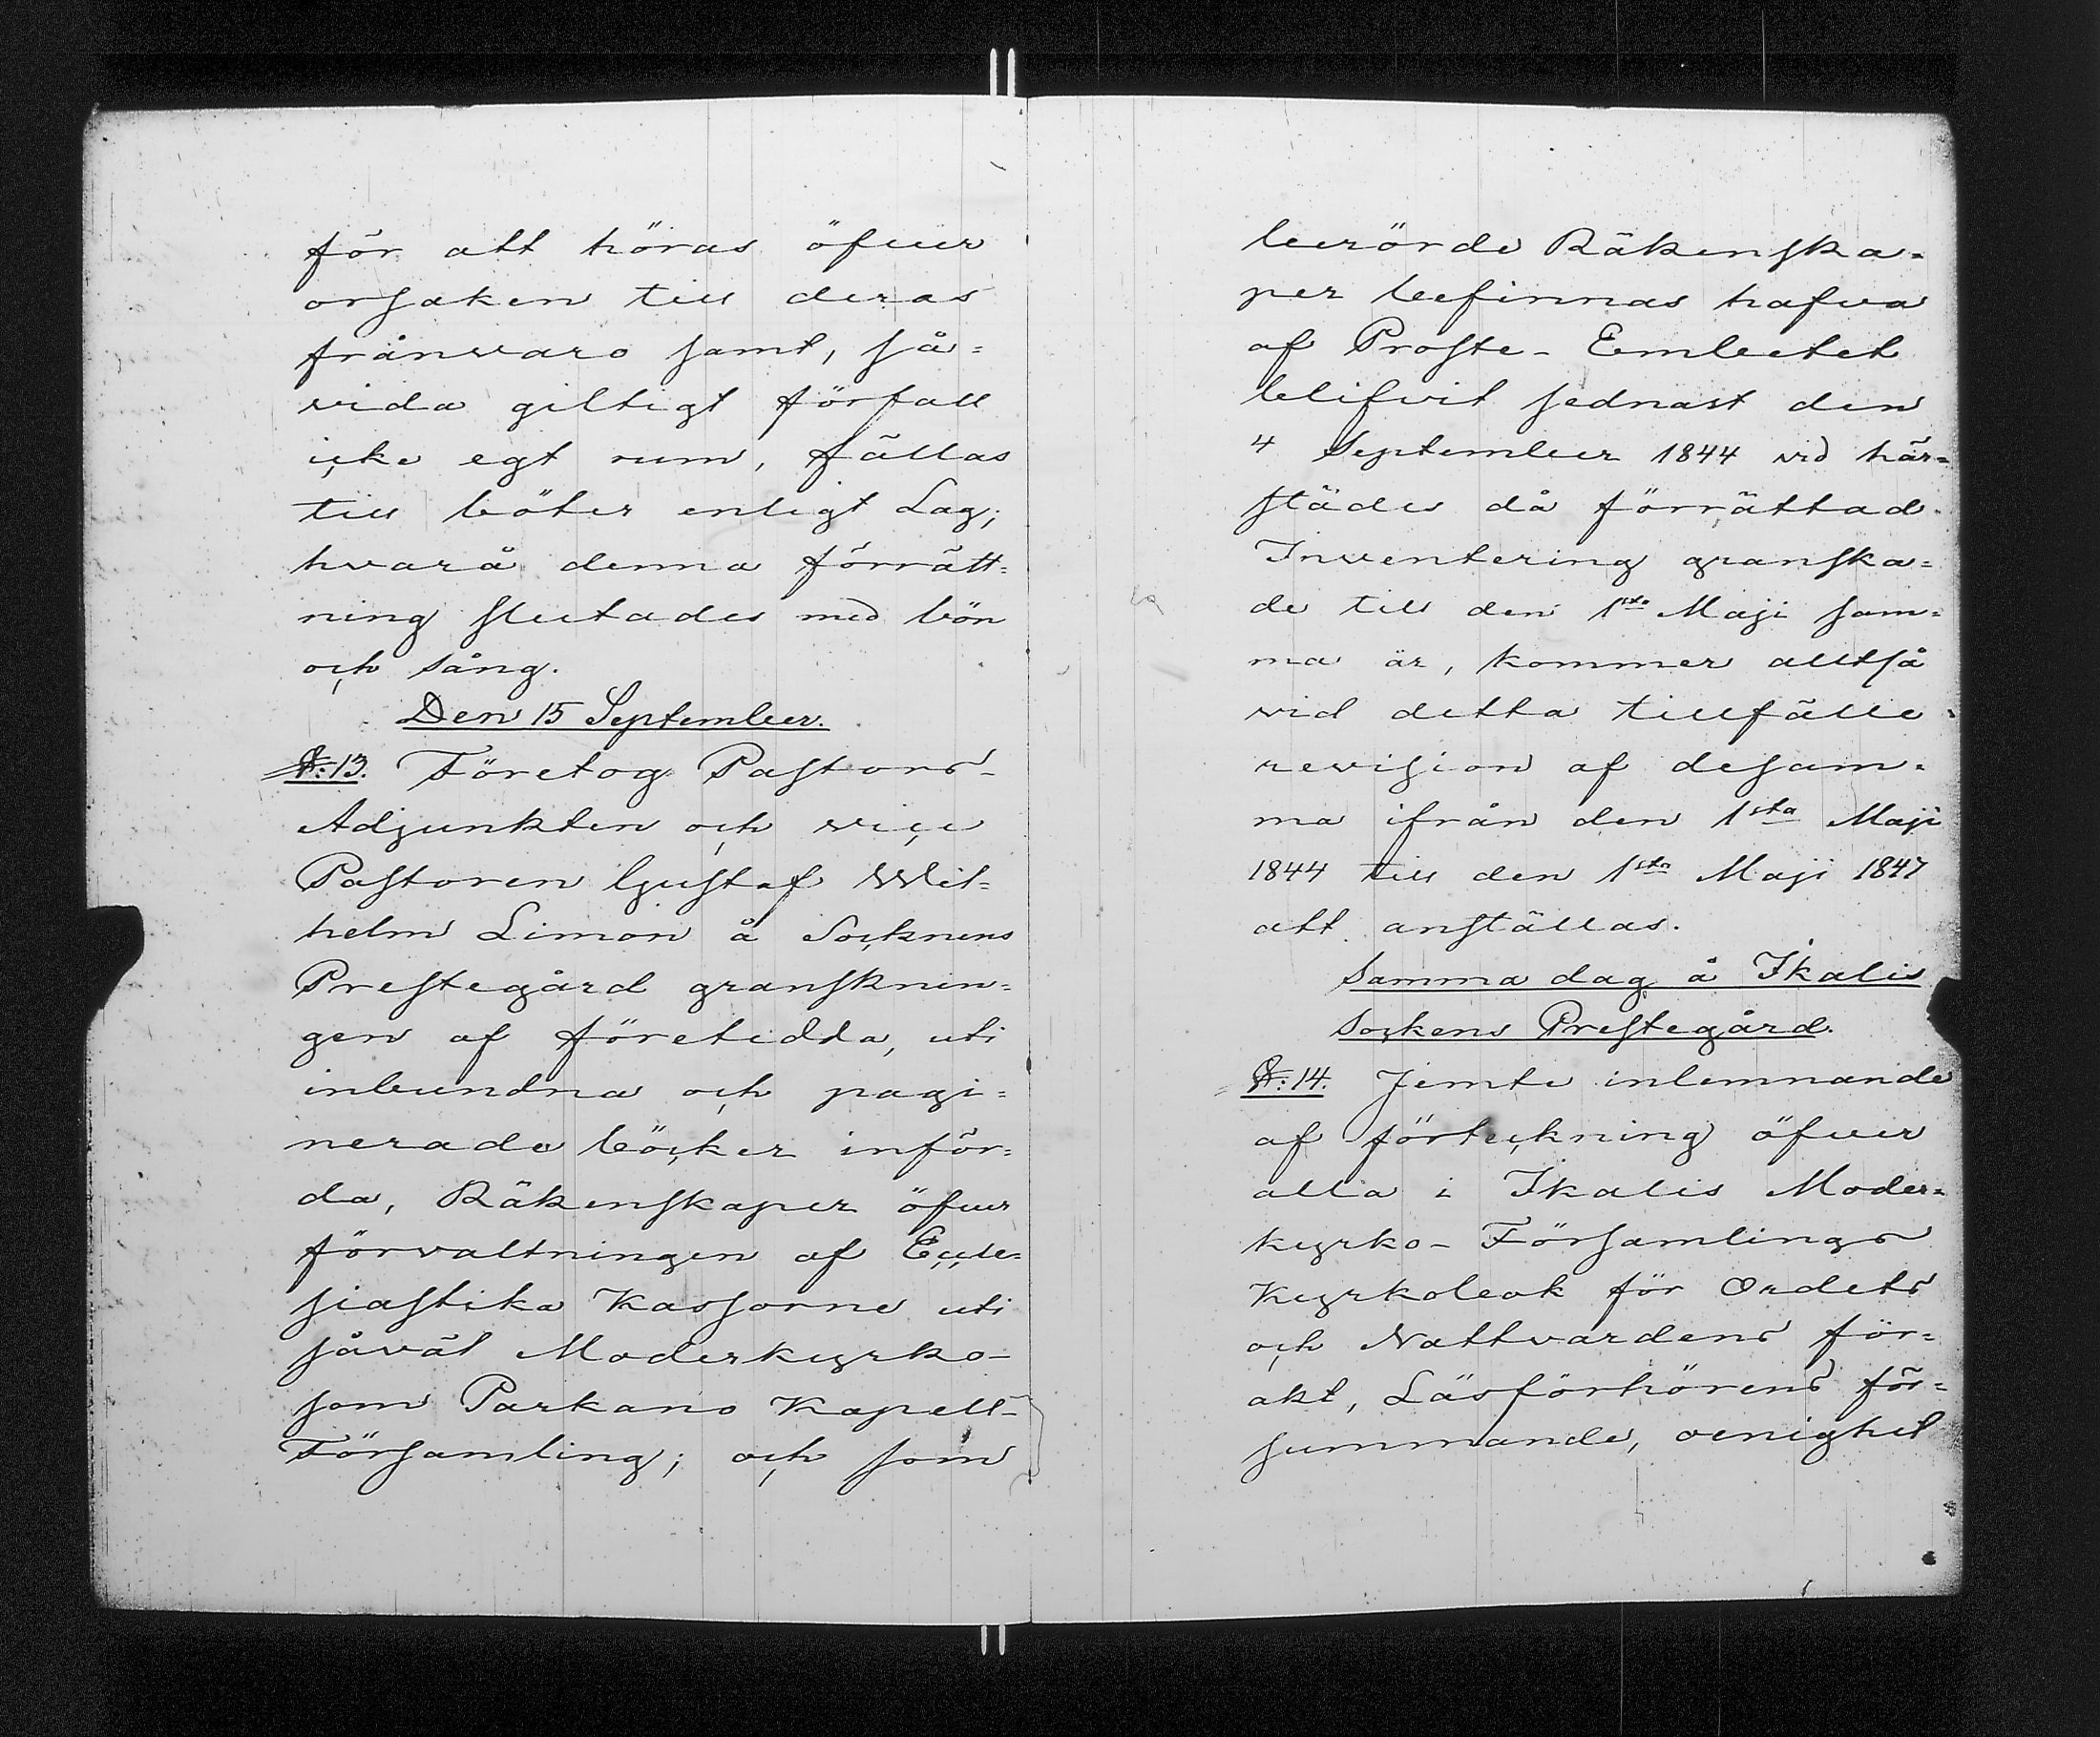 för att höras öfver
orsaken till deras
frånvaro samt, så=
vida giltigt förfall
icke egt rum, fällas
till böter enligt Lag;
hvarå denna förrätt=
ning slutades med bön
och sång.
Den 15 September.
§: 13. Företog Pastors-
Adjunkten och vice
Pastoren Gustaf Wil=
helm Limon å Socknens
Prestegård gransknin=
gen af företedda, uti
inbundna och pagi=
nerade böcker inför=
da, Räkenskaper öfver
förvaltningen af Eccle=
siastika Kassorne uti
såväl Moderkyrko-
som Parkano Kapell-
Församling; och som
berörde Räkenska=
per befinnas hafva
af Proste-Embetet
blifvit sednast den
4 September 1844 vid här=
städes då förrättad
Inventering granska=
de till den 1sta Maji sam=
ma år, kommer alltså
vid detta tillfälle
revision af desam=
ma ifrån den 1sta Maji
1844 till den 1sta Maji 1847
att anställas.
Samma dag å Ikalis
Sockens Prestegård.
§: 14. Jemte inlemnande
af förteckning öfver
alla i Ikalis Moder=
kyrko-Församlings
Kyrkobok för Ordets
och Nattvardens för=
akt, Läsförhörens för=
summande, oenighet